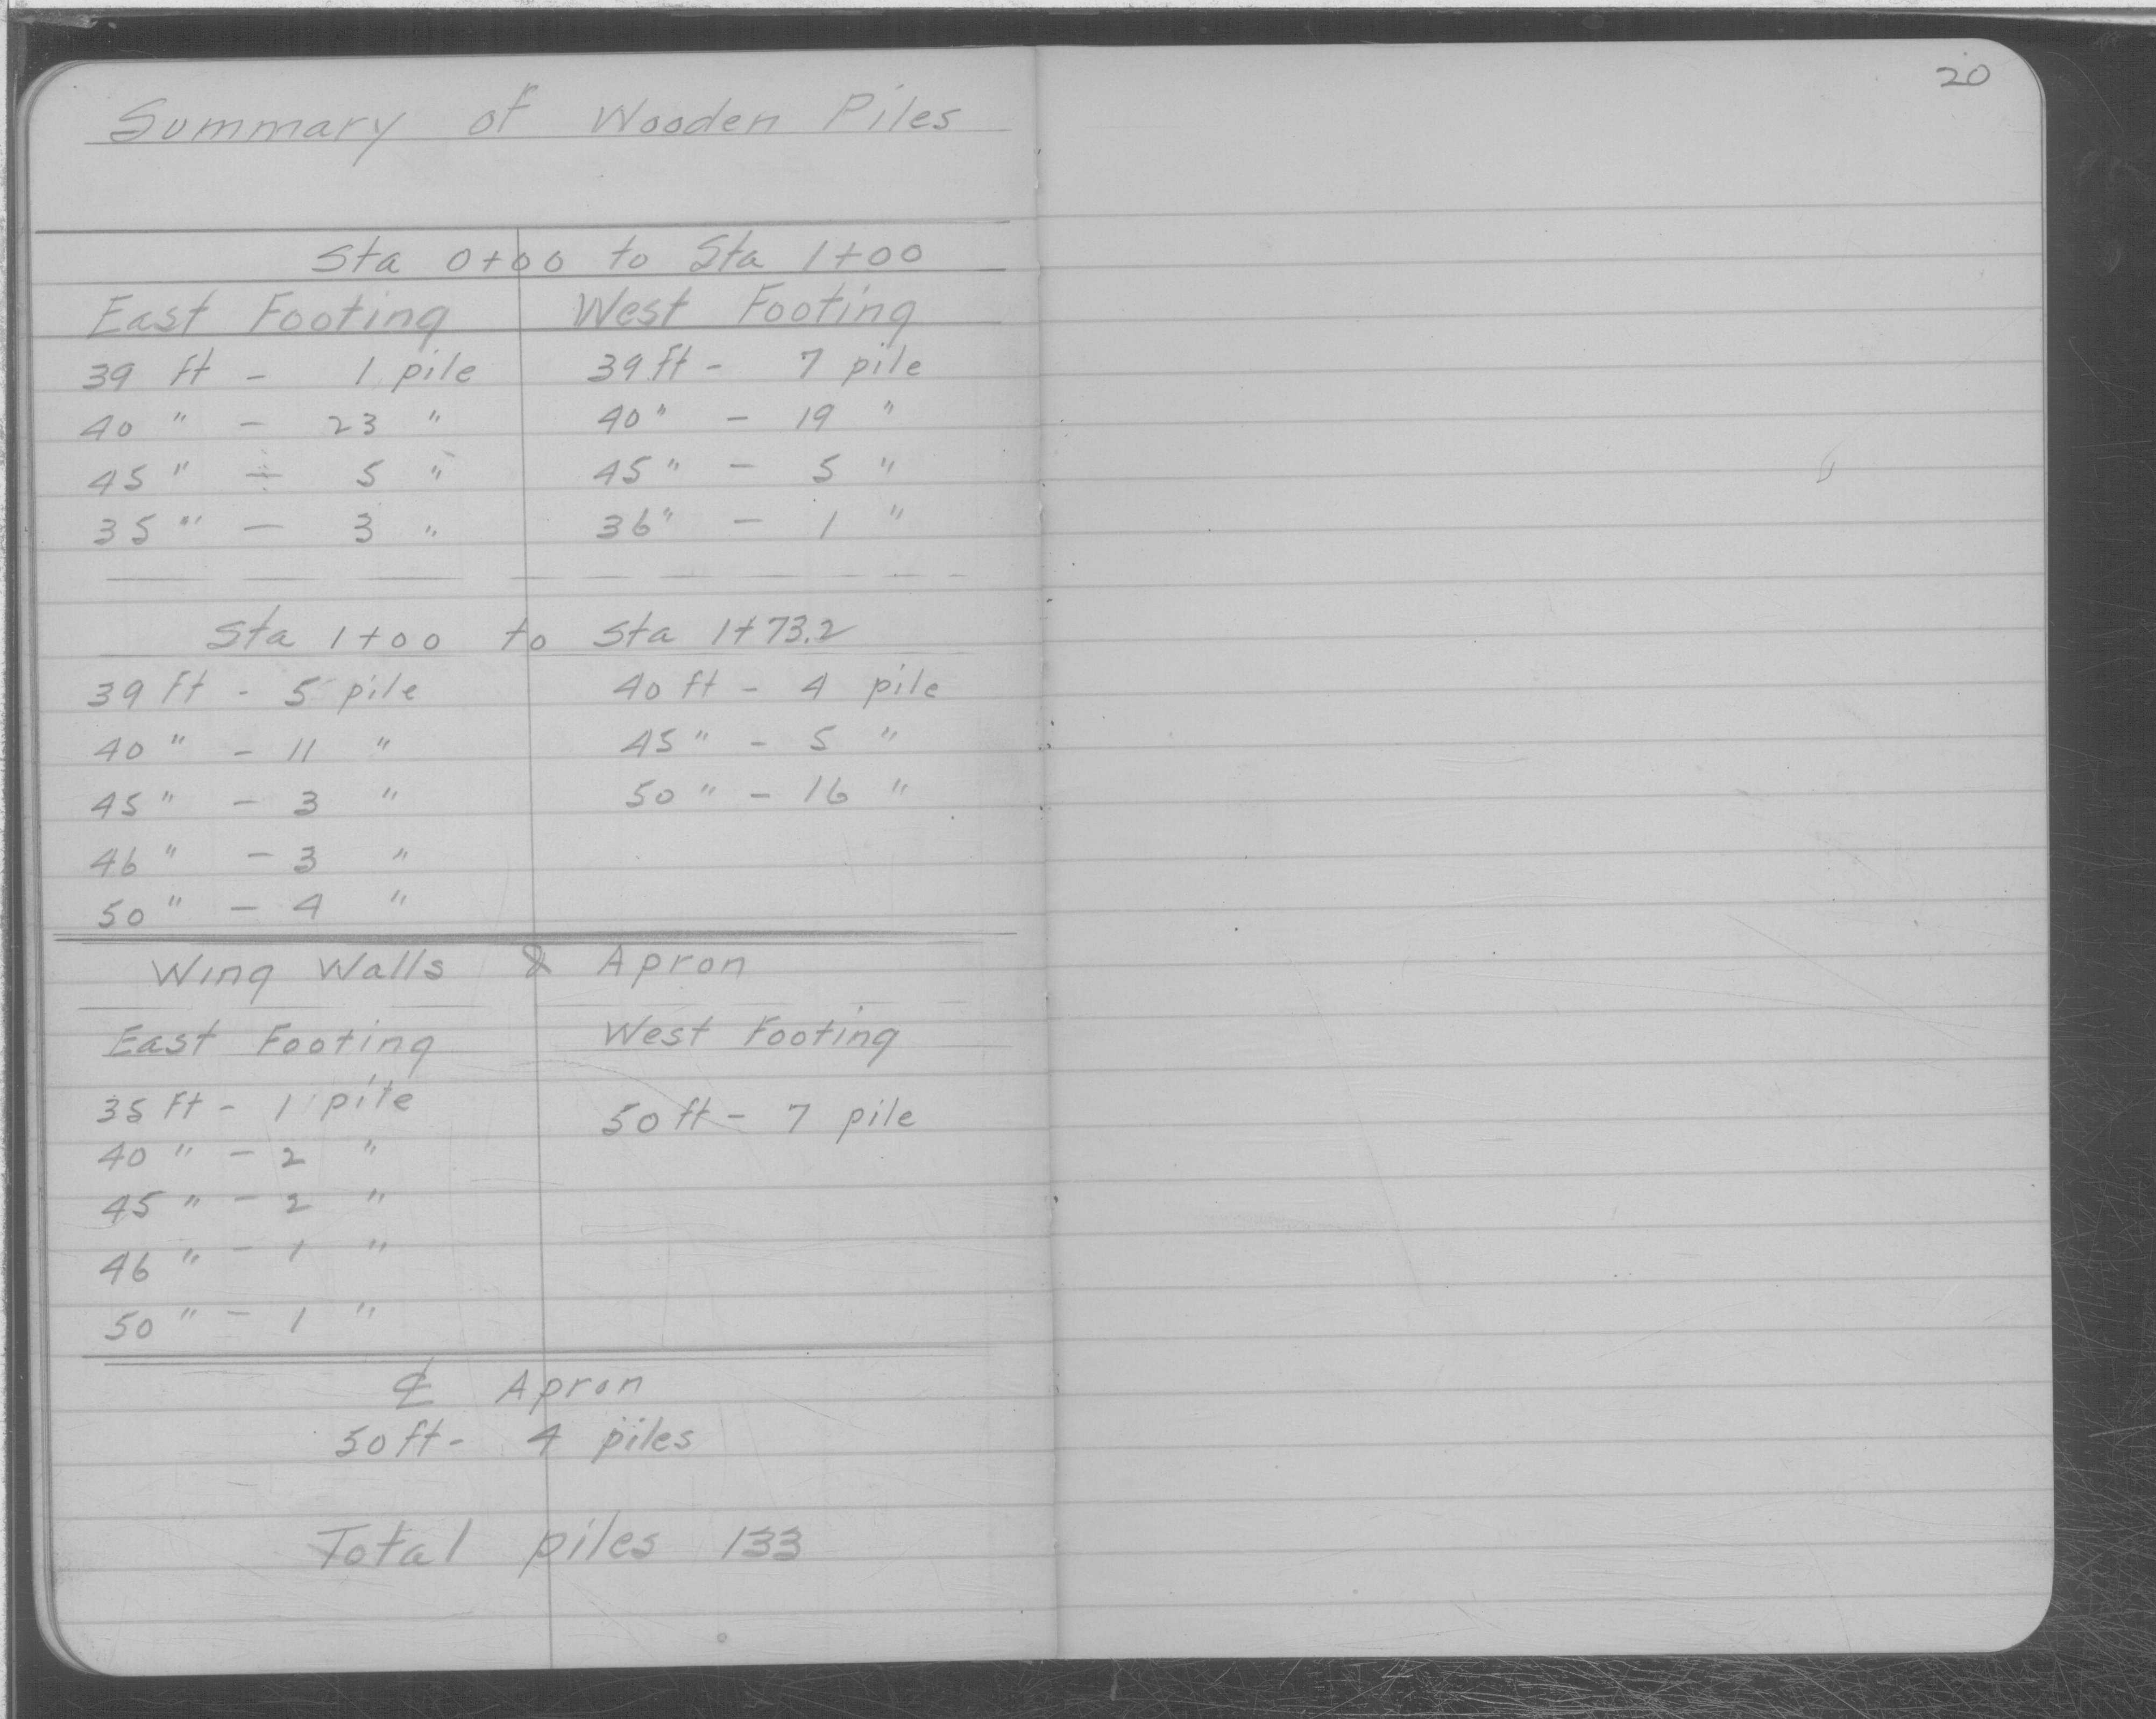 20
Summary of Wooden Piles
Sta 0+00 to Sta 1+00
East Footing West Footing
39 ft - 1 pile 39 ft - 7 pile
40 " - 23 " 40 " - 19 "
45 " - 5 " 45 " - 5 "
35 " - 3 " 36 " - 1 "
Sta 1+00 to Sta 1+73.2
39 ft - 5 pile 40 ft - 4 pile
40 " - 11 " 45 " - 5 "
45 " - 3 " 50 " - 16 "
46 " - 3 "
50 " - 4 "
Wing Walls & Apron
East Footing West Footing
35 ft - 1 pile 50 ft - 7 pile
40 " - 2 "
45 " - 2 "
46 " - 1 "
50 " - 1 "
℄ Apron
50 ft - 4 piles
Total piles 133